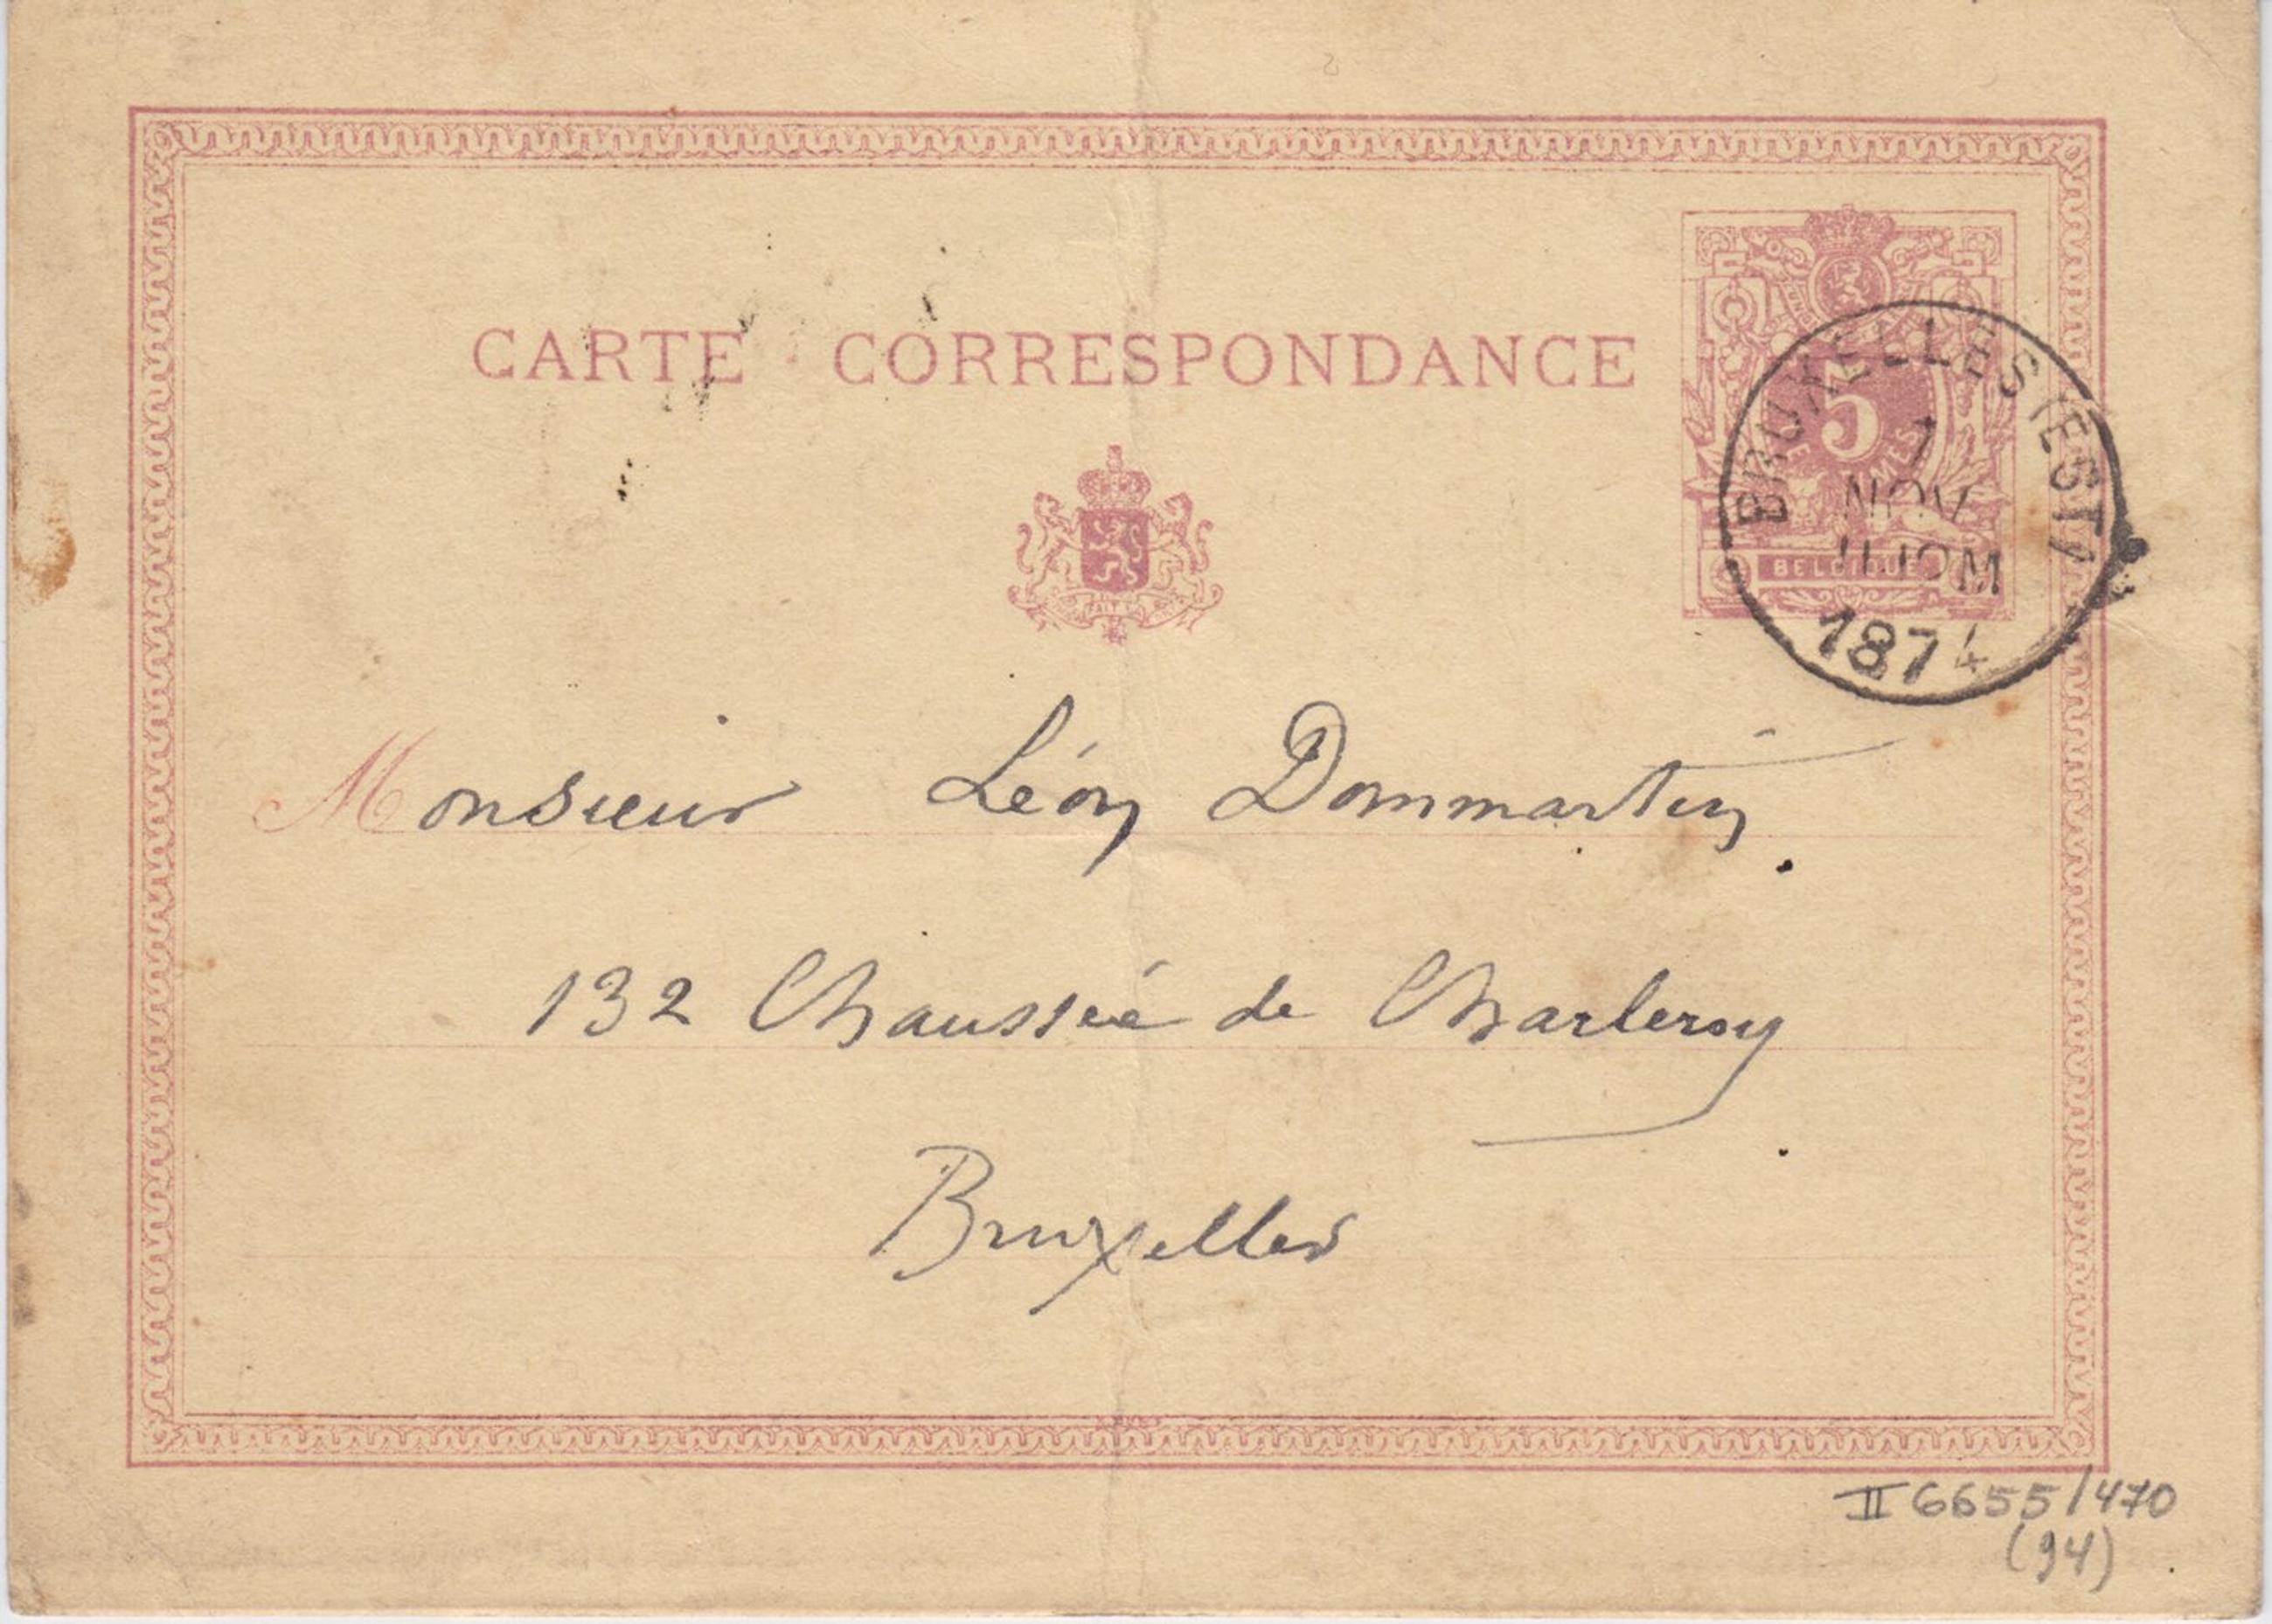 CARTE CORRESPONDANCE
5
CENTIMES
BELGIQUE
BRUXELLES (EST)
NOV
1874
Monsieur Léon Dommartin
132 Chaussée de Charleroy
Bruxelles
II 6655/470
(94)